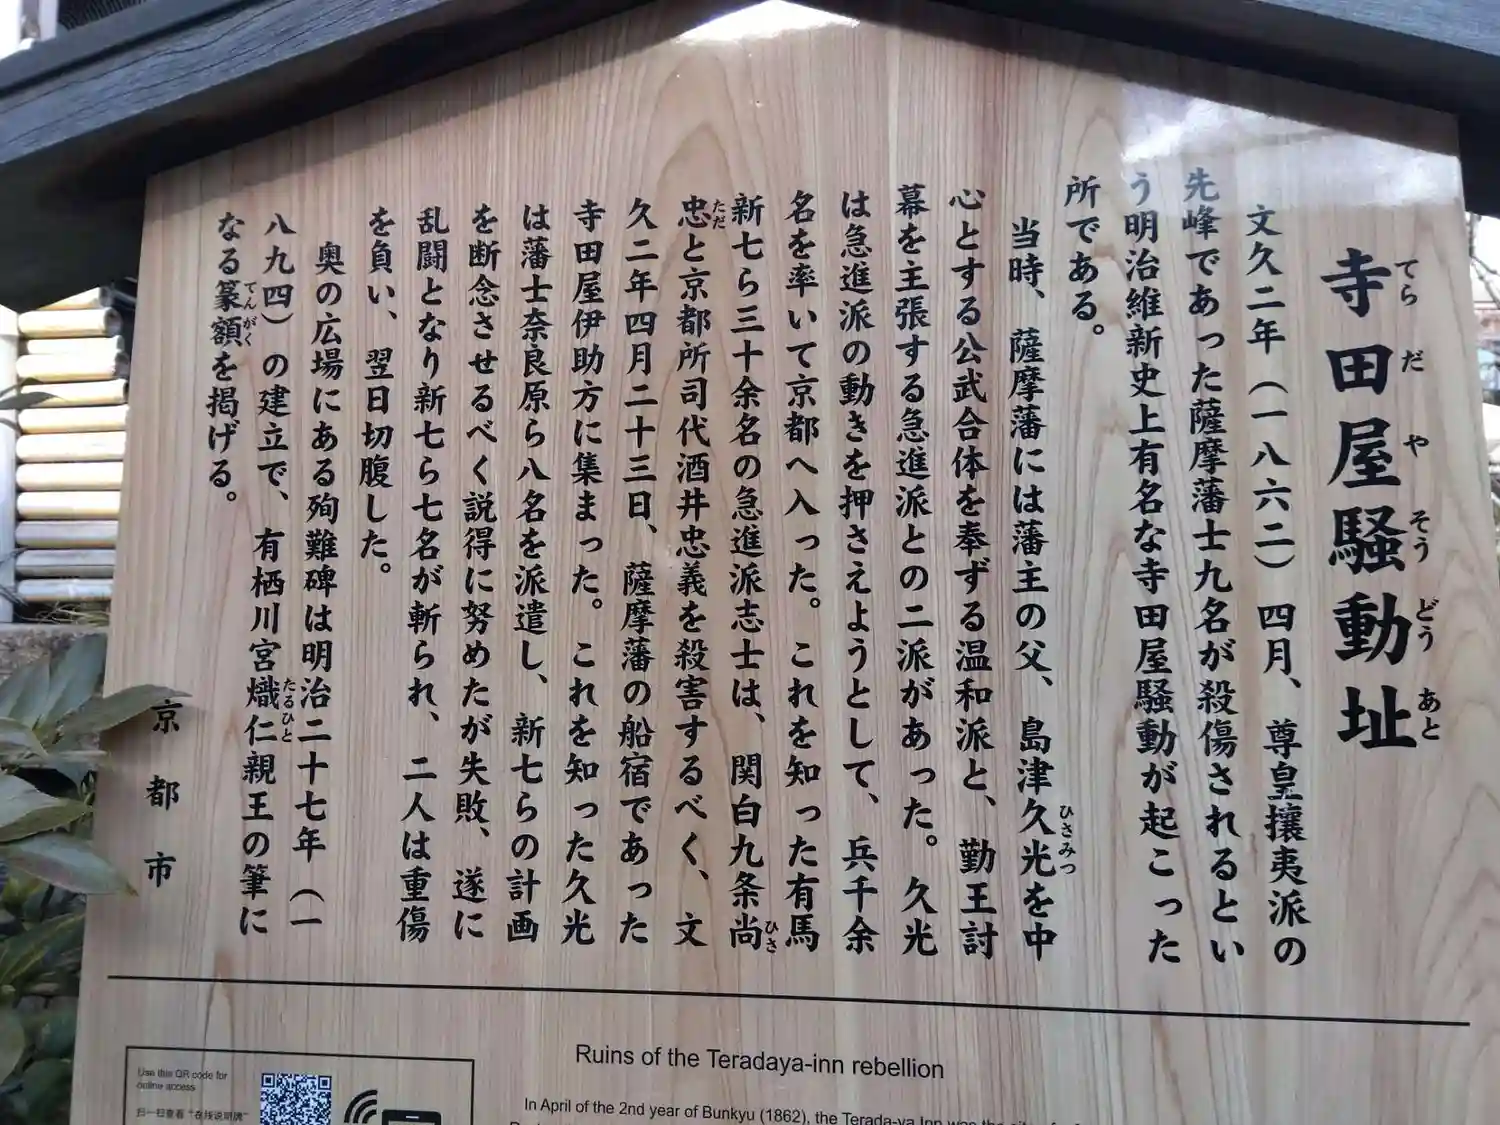 寺田屋騒動址
てらだやそうどうあと
文久二年（一八六二）四月、尊皇攘夷派の
先峰であった薩摩藩士九名が殺傷されるとい
う明治維新史上有名な寺田屋騒動が起こった
所である。
当時、薩摩藩には藩主の父、島津久光を中
ひさみつ
心とする公武合体を奉ずる温和派と、勤王討
幕を主張する急進派との二派があった。久光
は急進派の動きを押さえようとして、兵千余
名を率いて京都へ入った。これを知った有馬
新七ら三十余名の急進派志士は、関白九条尚
ひさ
忠と京都所司代酒井忠義を殺害するべく、文
ただ
久二年四月二十三日、薩摩藩の船宿であった
寺田屋伊助方に集まった。これを知った久光
は藩士奈良原ら八名を派遣し、新七らの計画
を断念させるべく説得に努めたが失敗、遂に
乱闘となり新七ら七名が斬られ、二人は重傷
を負い、翌日切腹した。
奥の広場にある殉難碑は明治二十七年（一
八九四）の建立で、有栖川宮熾仁親王の筆に
たるひと
なる篆額を掲げる。
てんがく
京都市
Ruins of the Teradaya-inn rebellion
Use this QR code for
online access
扫一扫查看“在线说明牌”
In April of the 2nd year of Bunkyu (1862), the Terada-ya Inn was the site of